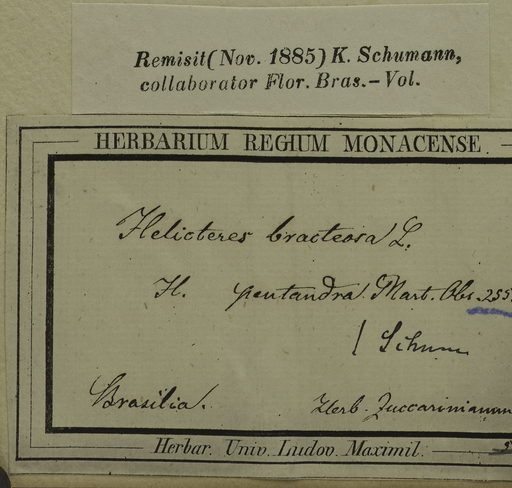 Remisit (Nov. 1885) K. Schumann,
collaborator Flor. Bras. – Vol.
HERBARIUM REGIUM MONACENSE.
Helicteres bracteosa L.
H. pentandra. Mart. Obs. 255
( Schum
Brasilia.
Herb. Zuccarinianum
Herbar. Univ. Ludov. Maximil.